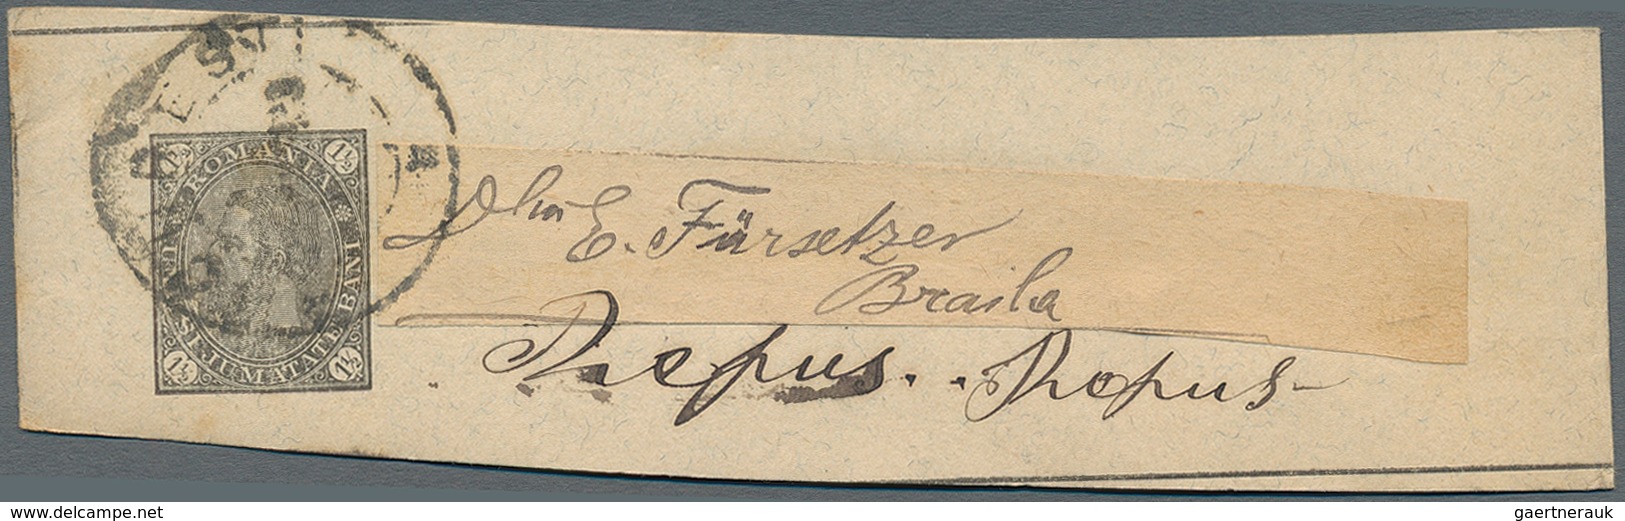 1½ 1½
ROMANIA
UNU SI JUMATATE BANI 1
1½ 1½
Dlui
E. Fürsetzer
Braila
Repus.. Repus
www.delcampe.net
gaertnerauk